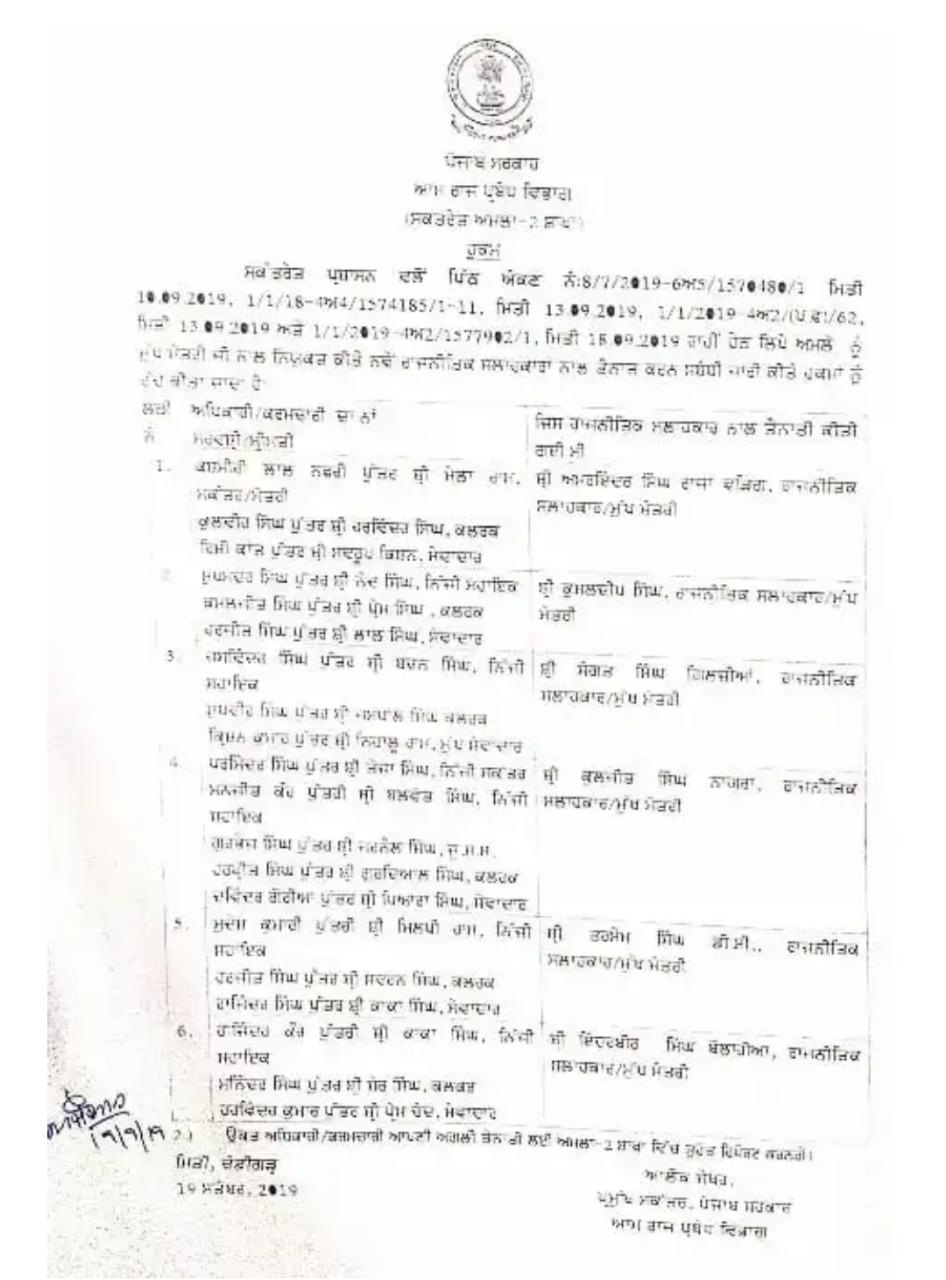 ਪੰਜਾਬ ਸਰਕਾਰ
ਆਮ ਰਾਜ ਪ੍ਰਬੰਧ ਵਿਭਾਗ
(ਸਕਤਰੇਤ ਅਮਲਾ-2 ਸ਼ਾਖਾ)
ਹੁਕਮ
ਸਕੱਤਰੇਤ ਪ੍ਰਸ਼ਾਸਨ ਵਲੋਂ ਪਿੱਠ ਅੰਕਣ ਨੰ:8/7/2019-6ਅ5/1570480/1 ਮਿਤੀ
10.09.2019, 1/1/18-4ਅ4/1574185/1-11, ਮਿਤੀ 13.09.2019, 1/1/2019-4ਅ2/(ਪ.ਫ)/62,
ਮਿਤੀ 13.09.2019 ਅਤੇ 1/1/2019-4ਅ2/1577902/1, ਮਿਤੀ 18.09.2019 ਰਾਹੀਂ ਹੇਠ ਲਿਖੇ ਅਮਲੇ ਨੂੰ
ਮੁੱਖ ਮੰਤਰੀ ਜੀ ਨਾਲ ਨਿਯੁਕਤ ਕੀਤੇ ਨਵੇਂ ਰਾਜਨੀਤਿਕ ਸਲਾਹਕਾਰਾਂ ਨਾਲ ਤੈਨਾਤ ਕਰਨ ਸਬੰਧੀ ਜਾਰੀ ਕੀਤੇ ਹੁਕਮਾਂ ਨੂੰ
ਰੱਦ ਕੀਤਾ ਜਾਂਦਾ ਹੈ
ਲੜੀ ਅਧਿਕਾਰੀ/ਕਰਮਚਾਰੀ ਦਾ ਨਾਂ
ਨੰ ਸਰਵਸ਼੍ਰੀ/ਸ਼੍ਰੀਮਤੀ
ਜਿਸ ਰਾਜਨੀਤਿਕ ਸਲਾਹਕਾਰ ਨਾਲ ਤੈਨਾਤੀ ਕੀਤੀ
ਗਈ ਸੀ
1. ਕਸ਼ਮੀਰੀ ਲਾਲ ਪੁੱਤਰ ਸ਼੍ਰੀ ਮੇਲਾ ਰਾਮ,
ਸਕੱਤਰ/ਮੰਤਰੀ
ਕੁਲਵੀਰ ਸਿੰਘ ਪੁੱਤਰ ਸ਼੍ਰੀ ਹਰਵਿੰਦਰ ਸਿੰਘ, ਕਲਰਕ
ਕਾਂਤ ਪੁੱਤਰ ਸ਼੍ਰੀ ਸਵਰੂਪ ਕਿਸ਼ਨ, ਸੇਵਾਦਾਰ
ਸ਼੍ਰੀ ਅਮਰਇੰਦਰ ਸਿੰਘ ਰਾਜਾ ਵੜਿੰਗ, ਰਾਜਨੀਤਿਕ
ਸਲਾਹਕਾਰ/ਮੁੱਖ ਮੰਤਰੀ
2. ਸੁਖਮੰਦਰ ਸਿੰਘ ਪੁੱਤਰ ਸ਼੍ਰੀ ਨੰਦ ਸਿੰਘ, ਨਿੱਜੀ ਸਹਾਇਕ
ਕਮਲਜੀਤ ਸਿੰਘ ਪੁੱਤਰ ਸ਼੍ਰੀ ਪ੍ਰੇਮ ਸਿੰਘ, ਕਲਰਕ
ਹਰਜੀਤ ਸਿੰਘ ਪੁੱਤਰ ਸ਼੍ਰੀ ਲਾਲ ਸਿੰਘ, ਸੇਵਾਦਾਰ
ਸ਼੍ਰੀ ਕੁਸ਼ਲਦੀਪ ਸਿੰਘ, ਰਾਜਨੀਤਿਕ ਸਲਾਹਕਾਰ/ਮੁੱਖ
ਮੰਤਰੀ
3. ਜਸਵਿੰਦਰ ਸਿੰਘ ਪੁੱਤਰ ਸ਼੍ਰੀ ਬਚਨ ਸਿੰਘ, ਨਿੱਜੀ
ਸਹਾਇਕ
ਸੁਖਵੀਰ ਸਿੰਘ ਪੁੱਤਰ ਸ਼੍ਰੀ ਜਸਪਾਲ ਸਿੰਘ ਕਲਰਕ
ਕ੍ਰਿਸ਼ਨ ਕੁਮਾਰ ਪੁੱਤਰ ਸ਼੍ਰੀ ਨਿਹਾਲੂ ਰਾਮ, ਮੁੱਖ ਸੇਵਾਦਾਰ
ਸ਼੍ਰੀ ਸੰਗਤ ਸਿੰਘ ਗਿਲਜੀਆਂ, ਰਾਜਨੀਤਿਕ
ਸਲਾਹਕਾਰ/ਮੁੱਖ ਮੰਤਰੀ
4. ਪਰਮਿੰਦਰ ਸਿੰਘ ਪੁੱਤਰ ਸ਼੍ਰੀ ਤੇਜਾ ਸਿੰਘ, ਨਿੱਜੀ ਸਕੱਤਰ
ਮਨਜੀਤ ਕੌਰ ਪੁੱਤਰੀ ਸ਼੍ਰੀ ਬਲਵੰਤ ਸਿੰਘ, ਨਿੱਜੀ
ਸਹਾਇਕ
ਗੁਰਭੇਜ ਸਿੰਘ ਪੁੱਤਰ ਸ਼੍ਰੀ ਜਰਨੈਲ ਸਿੰਘ, ਜੂ.ਸ.ਸ.
ਹਰਪ੍ਰੀਤ ਸਿੰਘ ਪੁੱਤਰ ਸ਼੍ਰੀ ਗੁਰਦਿਆਲ ਸਿੰਘ, ਕਲਰਕ
ਦਵਿੰਦਰ ਗੋਰੀਆ ਪੁੱਤਰ ਸ਼੍ਰੀ ਪਿਆਰਾ ਸਿੰਘ, ਸੇਵਾਦਾਰ
ਸ਼੍ਰੀ ਕੁਲਜੀਤ ਸਿੰਘ ਨਾਗਰਾ, ਰਾਜਨੀਤਿਕ
ਸਲਾਹਕਾਰ/ਮੁੱਖ ਮੰਤਰੀ
5. ਸੁਦੇਸ਼ ਕੁਮਾਰੀ ਪੁੱਤਰੀ ਸ਼੍ਰੀ ਮਿਲਖੀ ਰਾਮ, ਨਿੱਜੀ
ਸਹਾਇਕ
ਹਰਜੀਤ ਸਿੰਘ ਪੁੱਤਰ ਸ਼੍ਰੀ ਸਵਰਨ ਸਿੰਘ, ਕਲਰਕ
ਰਾਜਿੰਦਰ ਸਿੰਘ ਪੁੱਤਰ ਸ਼੍ਰੀ ਕਾਕਾ ਸਿੰਘ, ਸੇਵਾਦਾਰ
ਸ਼੍ਰੀ ਤਰਸੇਮ ਸਿੰਘ ਡੀ.ਸੀ., ਰਾਜਨੀਤਿਕ
ਸਲਾਹਕਾਰ/ਮੁੱਖ ਮੰਤਰੀ
6. ਰਾਜਿੰਦਰ ਕੌਰ ਪੁੱਤਰੀ ਸ਼੍ਰੀ ਕਾਕਾ ਸਿੰਘ, ਨਿੱਜੀ
ਸਹਾਇਕ
ਮਨਿੰਦਰ ਸਿੰਘ ਪੁੱਤਰ ਸ਼੍ਰੀ ਸ਼ੇਰ ਸਿੰਘ, ਕਲਰਕ
ਹਰਵਿੰਦਰ ਕੁਮਾਰ ਪੁੱਤਰ ਸ਼੍ਰੀ ਪ੍ਰੇਮ ਚੰਦ, ਸੇਵਾਦਾਰ
ਸ਼੍ਰੀ ਇੰਦਰਬੀਰ ਸਿੰਘ ਬੋਲਾਰੀਆ, ਰਾਜਨੀਤਿਕ
ਸਲਾਹਕਾਰ/ਮੁੱਖ ਮੰਤਰੀ
2.) ਉਕਤ ਅਧਿਕਾਰੀ/ਕਰਮਚਾਰੀ ਆਪਣੀ ਅਗਲੀ ਤੈਨਾਤੀ ਲਈ ਅਮਲਾ-2 ਸ਼ਾਖਾ ਵਿੱਚ ਤੁਰੰਤ ਰਿਪੋਰਟ ਕਰਨਗੇ।
ਮਿਤੀ, ਚੰਡੀਗੜ੍ਹ
19 ਸਤੰਬਰ, 2019
ਆਲੋਕ ਸ਼ੇਖਰ,
ਪ੍ਰਮੁੱਖ ਸਕੱਤਰ, ਪੰਜਾਬ ਸਰਕਾਰ
ਆਮ ਰਾਜ ਪ੍ਰਬੰਧ ਵਿਭਾਗ
19/9/19